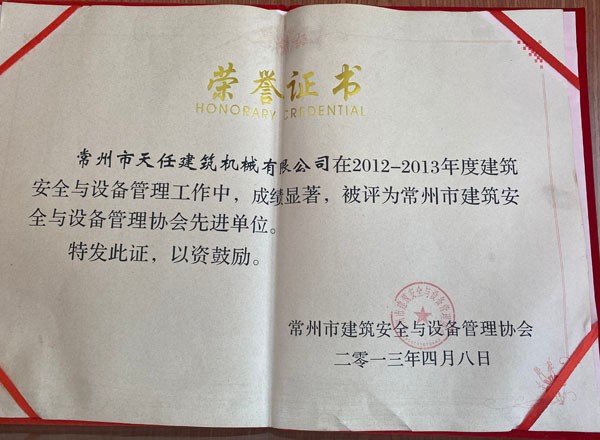 荣誉证书
HONORARY CREDENTIAL
常州市天任建筑机械有限公司在2012-2013年度建筑
安全与设备管理工作中，成绩显著，被评为常州市建筑安
全与设备管理协会先进单位。
特发此证，以资鼓励。
常州市建筑安全与设备管理协会
二零一三年四月八日